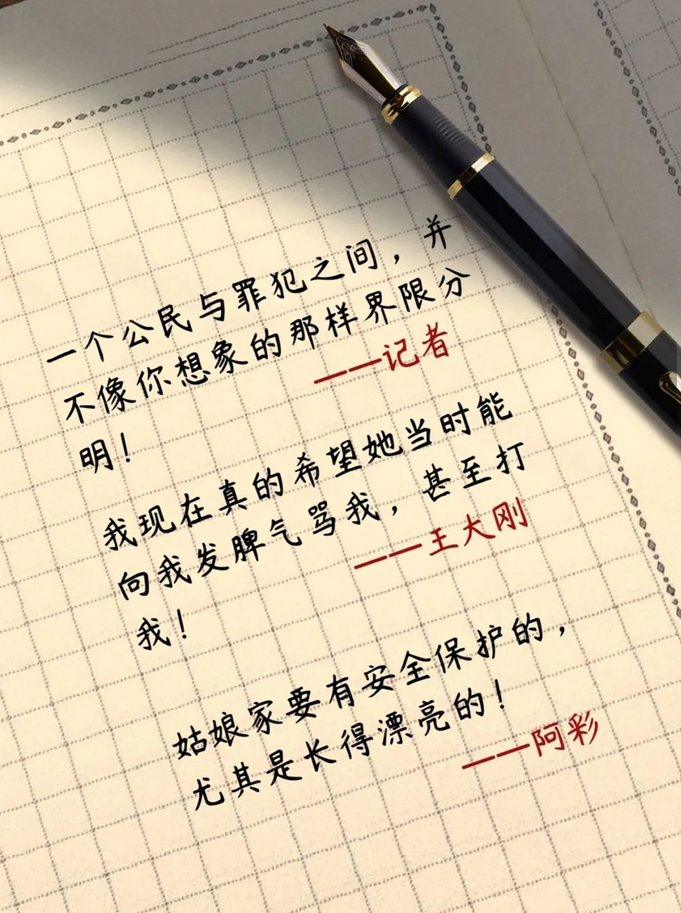 一个公民与罪犯之间，并
不像你想象的那样界限分
明！
——记者
我现在真的希望她当时能
向我发脾气骂我，甚至打
我！
——王大刚
姑娘家要有安全保护的，
尤其是长得漂亮的！
——阿彩